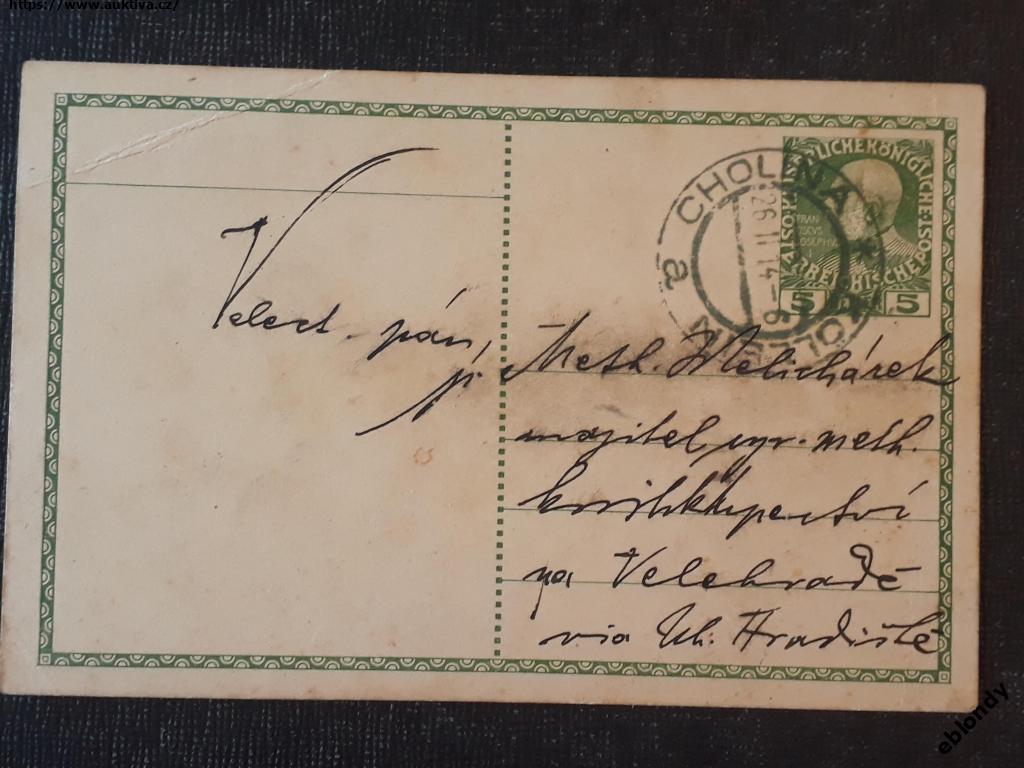 https://www.auktiva.cz/
CHOLINA
KÖLLEIN
26 II 14 - 6
a
KAISERLICHE KÖNIGLICHE ÖSTERREICHISCHE POST
FRAN
CISCVS
IOSEPHVS I
5 5
Velect. pán,
p.
Meth. Melichárek
majitel, vyr. meth.
knihkupectví
na Velehradě
via Uh. Hradiště
eblondy